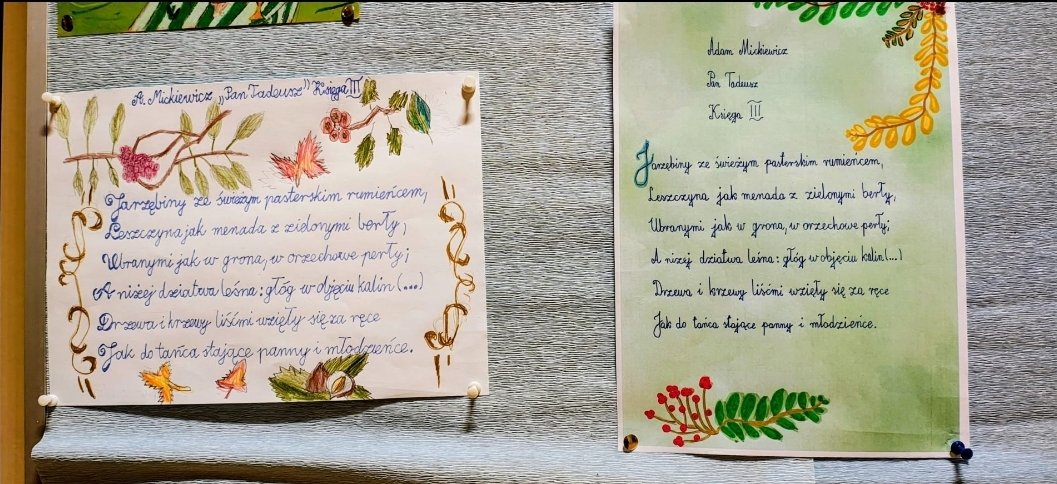 A. Mickiewicz „Pan Tadeusz" Księga III
Jarzębiny ze świeżym pasterskim rumieńcem,
Leszczyna jak menada z zielonymi berły,
Ubranymi jak w grona, w orzechowe perły;
A niżej dziatwa leśna: głóg w objęciu kalin (...)
Drzewa i krzewy liśćmi wzięły się za ręce
Jak do tańca stające panny i młodzieńce.
Adam Mickiewicz
Pan Tadeusz
Księga III
Jarzębiny ze świeżym pasterskim rumieńcem,
Leszczyna jak menada z zielonymi berły,
Ubranymi jak w grona, w orzechowe perły;
A niżej dziatwa leśna: głóg w objęciu kalin (...)
Drzewa i krzewy liśćmi wzięły się za ręce
Jak do tańca stające panny i młodzieńce.